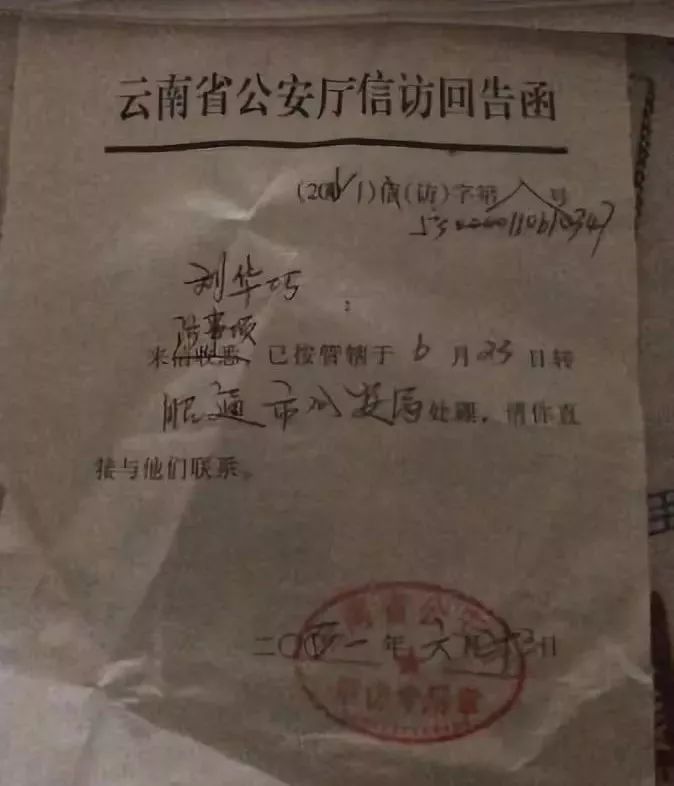 云南省公安厅信访回告函
(2011)信(访)字第 号
530000110610347
刘华巧:
访事项
来信收悉,已按管辖于6月23日转
昭通市公安局处理,请你直
接与他们联系。
二〇一一年六月廿三日